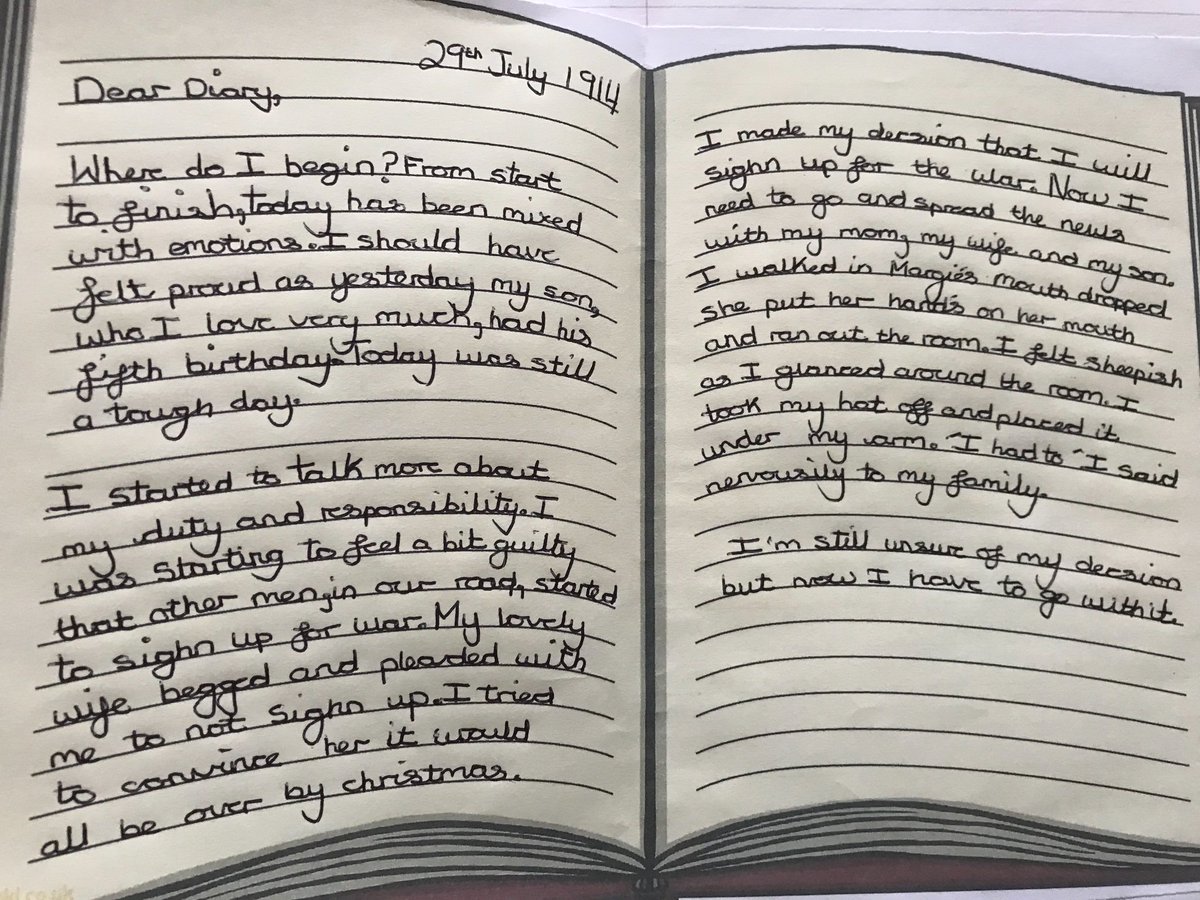 29th July 1914
Dear Diary,
Where do I begin? From start
to finish, today has been mixed
with emotions. I should have
felt proud as yesterday my son,
who I love very much, had his
fifth birthday. Today was still
a tough day.
I started to talk more about
my duty and responsibility. I
was starting to feel a bit guilty
that other men, in our road, started
to sighn up for war. My lovely
wife begged and plearded with
me to not sighn up. I tried
to convince her it would
all be over by christmas.
I made my decsion that I will
sighn up for the war. Now I
need to go and spread the news
with my mom, my wife and my son.
I walked in Margie's mouth dropped
she put her hands on her mouth
and ran out the room. I felt sheepish
as I glanced around the room. I
took my hat off and placed it
under my arm. "I had to" I said
nervousily to my family.
I'm still unsure of my decsion
but now I have to go with it.